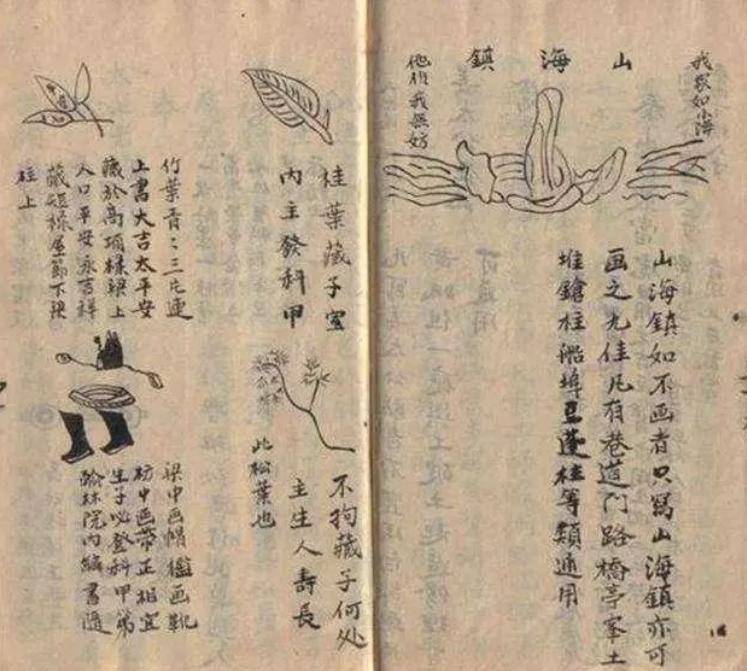 山海鎮
我家如山海
他作我無妨
山海鎮如不画者只寫山海鎮亦可
画之尤佳凡有巷道门路橋亭峯土
堆鎗柱船埠豆蓬柱等類通用
桂葉藏于室
内主發科甲
竹葉青:三片連
上書大吉太平安
藏於高項樑梁上
人口平安永吉祥
屋節下梁
柱上
不拘藏于何处
主生人壽長
此松葉也
梁中画帽檻画靴
枋中画帶正相宜
生子必登科甲第
翰林院内編書隨